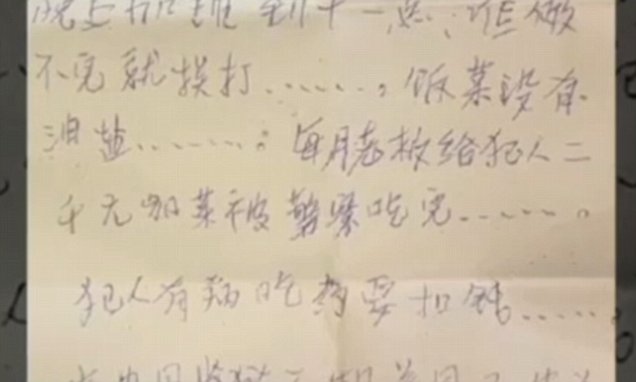 晚上加班到十一点,谁做
不完就挨打.......。饭菜没有
油盐........。每月老板给犯人二
千元加菜被警察吃完.......。
犯人有病吃药要扣钱......
在中国监狱